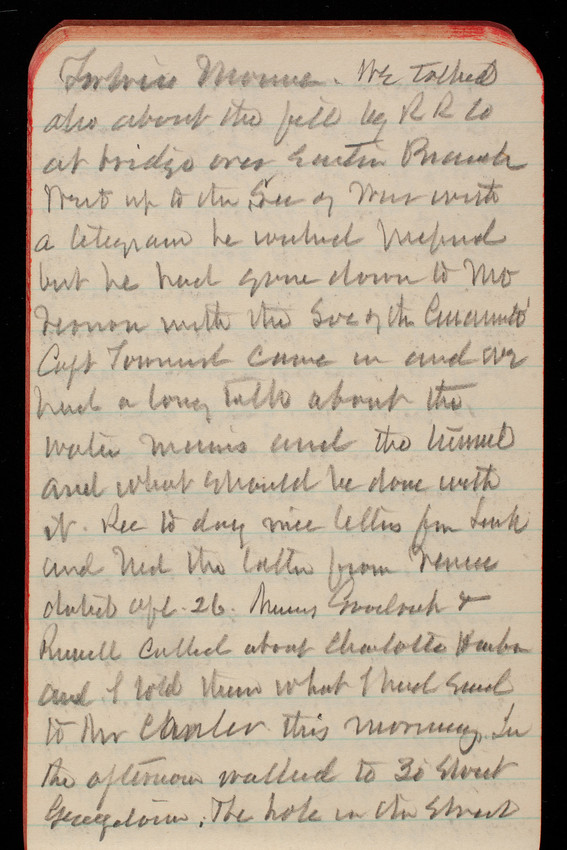 We talked
also about the fill by R R Co
at bridge over Eastern Branch
Went up to the Sec of War with
a telegram he wished prepared
but he had gone down to Mt
Vernon with the Soc of the Cincinnati
Capt Townsend came in and we
had a long talk about the
water mains and the tunnel
and what should be done with
it. Rec to day nice letters fm
and Ned the latter from Venice
dated Apl. 26. &
Russell called about Charlotte Harbor
and I told them what I had said
to Mr this morning. In
the afternoon walked to 30 Street
Georgetown. The hole in the Street